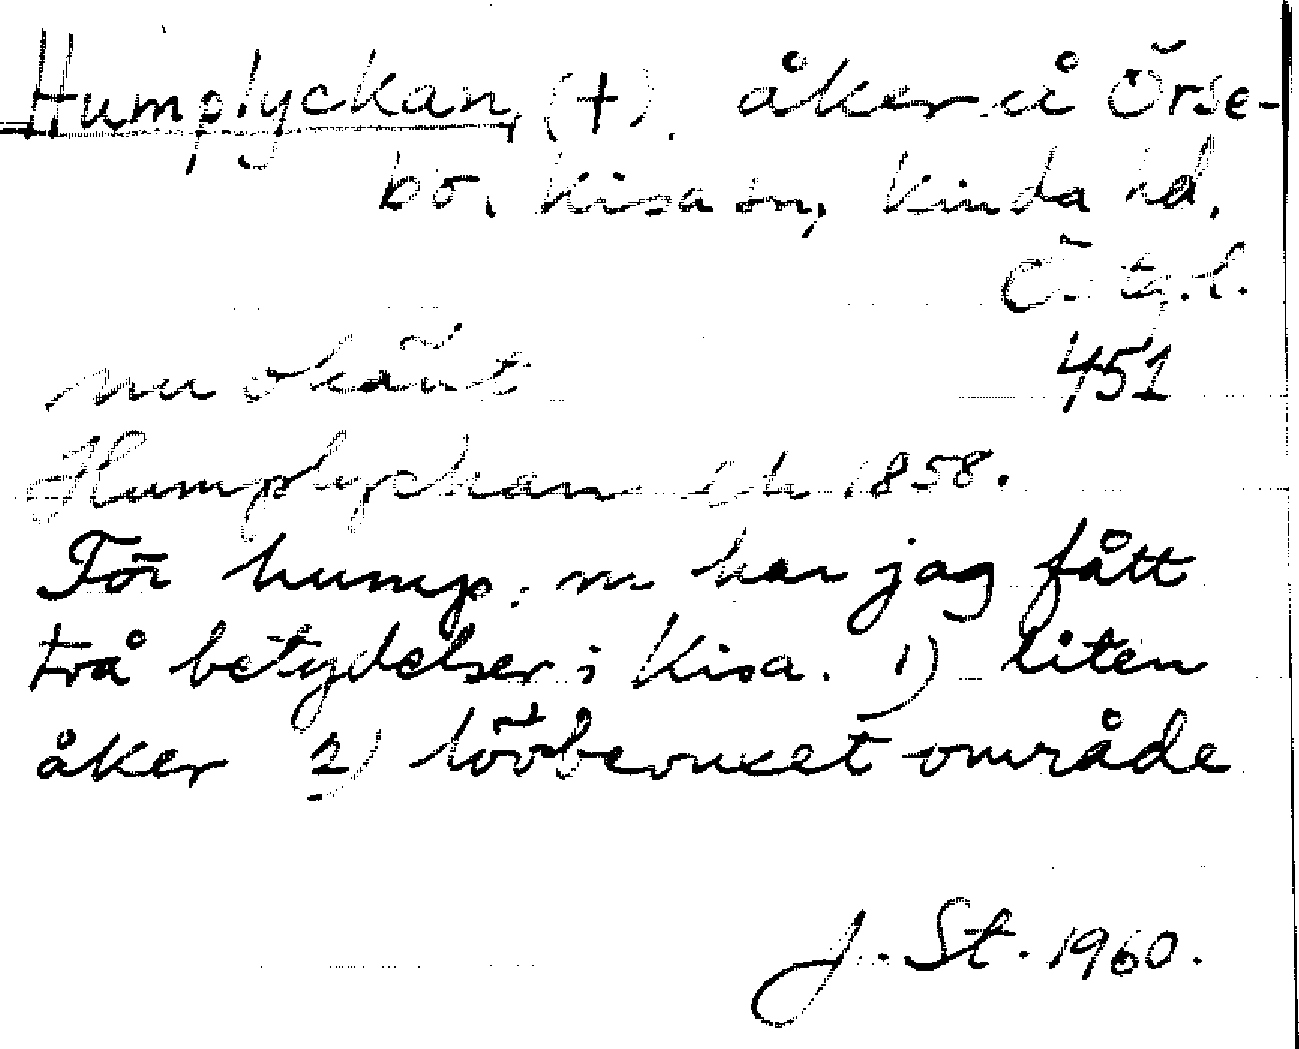 Humplyckan, (+). åker å Örse-
bo. Kisa sn, Kinda hd.
Ö.tg.l.
451
nu okänt
Humplyckan 1858.
För hump. m har jag fått
två betydelser i Kisa. 1) liten
åker 2) lövbevuxet område
J. St. 1960.